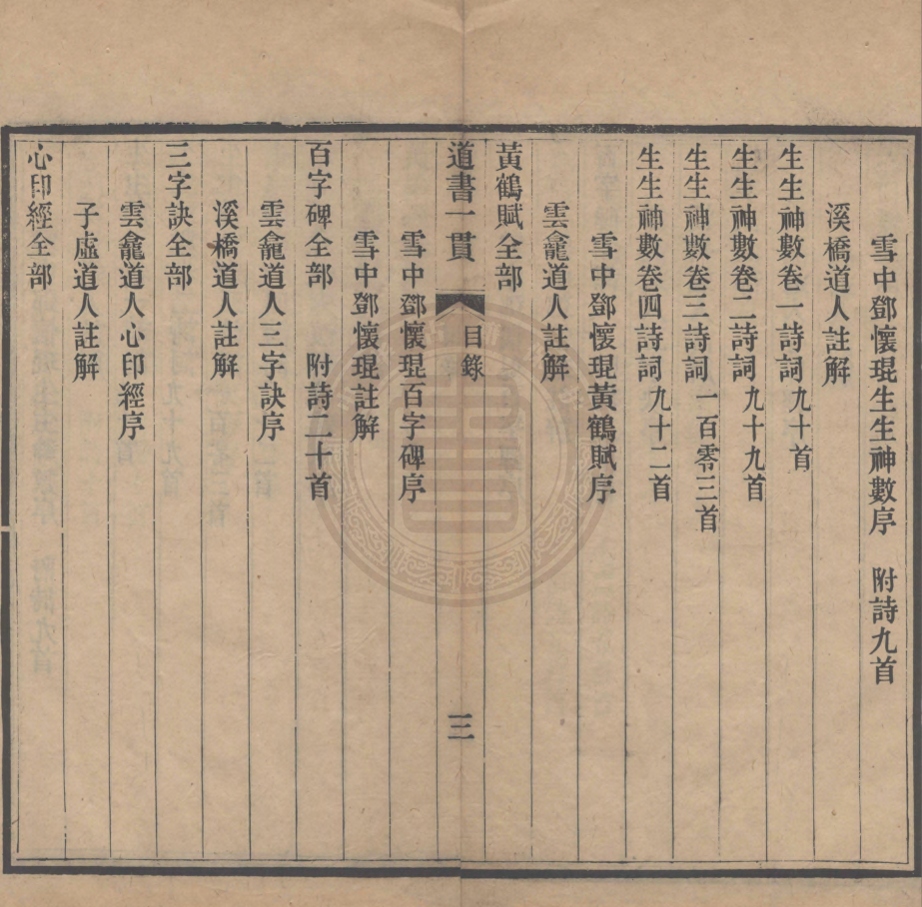 雪中鄧懷琨生生神數序　附詩九首
溪橋道人註解
生生神數卷一詩詞九十首
生生神數卷二詩詞九十九首
生生神數卷三詩詞一百零三首
生生神數卷四詩詞九十二首
雪中鄧懷琨黃鶴賦序
雲龕道人註解
黃鶴賦全部
道書一貫　目錄　三
雪中鄧懷琨百字碑序
雪中鄧懷琨註解
百字碑全部　附詩二十首
雲龕道人三字訣序
溪橋道人註解
三字訣全部
雲龕道人心印經序
子虛道人註解
心印經全部